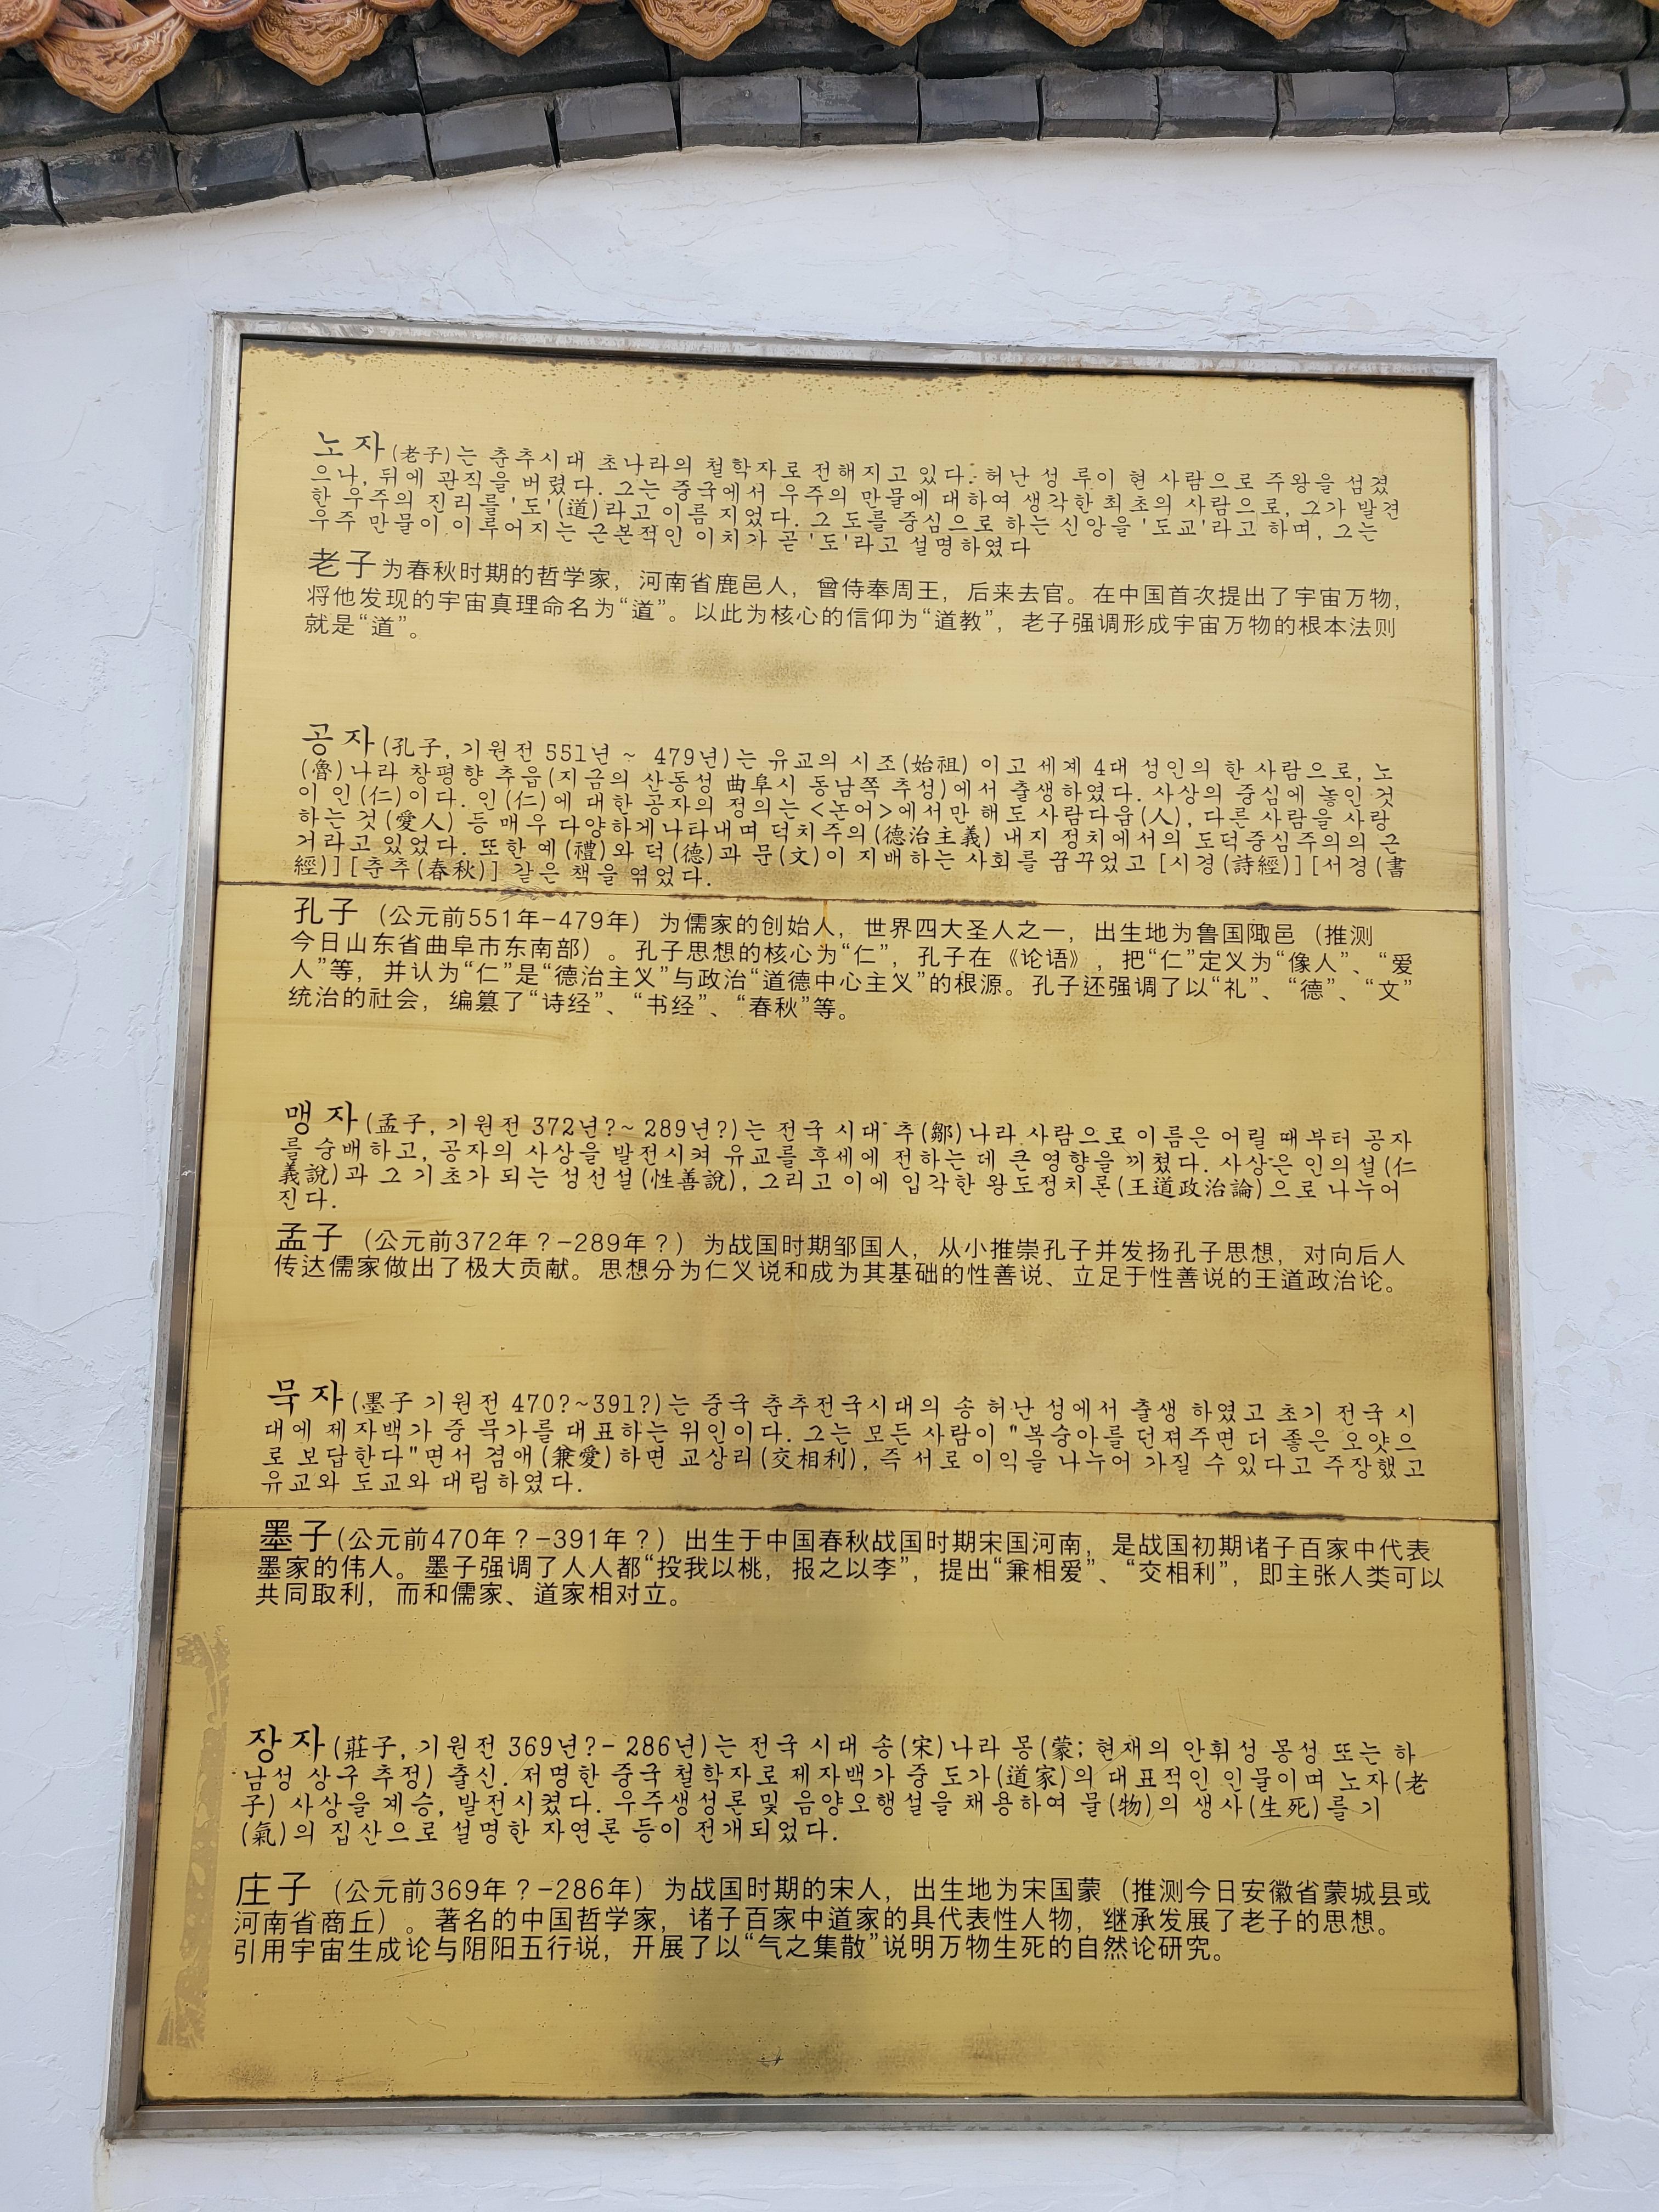 노자(老子)는 춘추시대 초나라의 철학자로 전해지고 있다. 허난 성 루이 현 사람으로 주왕을 섬겼
으나, 뒤에 관직을 버렸다. 그는 중국에서 우주의 만물에 대하여 생각한 최초의 사람으로, 그가 발견
한 우주의 진리를 '도'(道)라고 이름 지었다. 그 도를 중심으로 하는 신앙을 '도교'라고 하며, 그는
우주 만물이 이루어지는 근본적인 이치가 곧 '도'라고 설명하였다
老子为春秋时期的哲学家，河南省鹿邑人，曾侍奉周王，后来去官。在中国首次提出了宇宙万物，
将他发现的宇宙真理命名为“道”。以此为核心的信仰为“道教”，老子强调形成宇宙万物的根本法则
就是“道”。
공자(孔子, 기원전 551년 ~ 479년)는 유교의 시조(始祖) 이고 세계 4대 성인의 한 사람으로, 노
(魯)나라 창평향 추읍(지금의 산동성 曲阜시 동남쪽 추성)에서 출생하였다. 사상의 중심에 놓인 것
이 인(仁)이다. 인(仁)에 대한 공자의 정의는<논어>에서만 해도 사람다움(人), 다른 사람을 사랑
하는 것(愛人) 등 매우 다양하게나타내며 덕치주의(德治主義) 내지 정치에서의 도덕중심주의의 근
거라고 있었다. 또한 예(禮)와 덕(德)과 문(文)이 지배하는 사회를 꿈꾸었고 [시경(詩經)][서경(書
經)][춘추(春秋)] 같은 책을 엮었다.
孔子（公元前551年-479年）为儒家的创始人，世界四大圣人之一，出生地为鲁国陬邑（推测
今日山东省曲阜市东南部）。孔子思想的核心为“仁”，孔子在《论语》，把“仁”定义为“像人”、“爱
人”等，并认为“仁”是“德治主义”与政治“道德中心主义”的根源。孔子还强调了以“礼”、“德”、“文”
统治的社会，编篡了“诗经”、“书经”、“春秋”等。
맹자(孟子, 기원전 372년?~ 289년?)는 전국 시대 추(鄒)나라 사람으로 이름은 어릴 때부터 공자
를 숭배하고, 공자의 사상을 발전시켜 유교를 후세에 전하는 데 큰 영향을 끼쳤다. 사상은 인의설(仁
義說)과 그 기초가 되는 성선설(性善說), 그리고 이에 입각한 왕도정치론(王道政治論)으로 나누어
진다.
孟子（公元前372年？-289年？）为战国时期邹国人，从小推崇孔子并发扬孔子思想，对向后人
传达儒家做出了极大贡献。思想分为仁义说和成为其基础的性善说、立足于性善说的王道政治论。
묵자(墨子 기원전 470?~391?)는 중국 춘추전국시대의 송 허난 성에서 출생 하였고 초기 전국 시
대에 제자백가 중 묵가를 대표하는 위인이다. 그는 모든 사람이 "복숭아를 던져주면 더 좋은 오얏으
로 보답한다"면서 겸애(兼愛)하면 교상리(交相利), 즉 서로 이익을 나누어 가질 수 있다고 주장했고
유교와 도교와 대립하였다.
墨子(公元前470年？-391年？）出生于中国春秋战国时期宋国河南，是战国初期诸子百家中代表
墨家的伟人。墨子强调了人人都“投我以桃，报之以李”，提出“兼相爱”、“交相利”，即主张人类可以
共同取利，而和儒家、道家相对立。
장자(莊子, 기원전 369년?- 286년)는 전국 시대 송(宋)나라 몽(蒙; 현재의 안휘성 몽성 또는 하
남성 상구 추정) 출신. 저명한 중국 철학자로 제자백가 중 도가(道家)의 대표적인 인물이며 노자(老
子) 사상을 계승, 발전시켰다. 우주생성론 및 음양오행설을 채용하여 물(物)의 생사(生死)를 기
(氣)의 집산으로 설명한 자연론 등이 전개되었다.
庄子（公元前369年？-286年）为战国时期的宋人，出生地为宋国蒙（推测今日安徽省蒙城县或
河南省商丘）。著名的中国哲学家，诸子百家中道家的具代表性人物，继承发展了老子的思想。
引用宇宙生成论与阴阳五行说，开展了以“气之集散”说明万物生死的自然论研究。